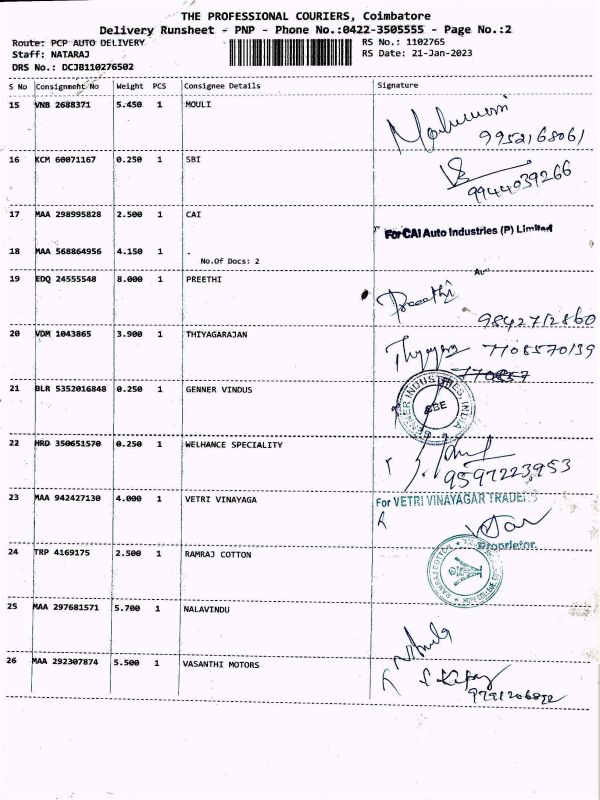 THE PROFESSIONAL COURIERS, Coimbatore
Delivery Runsheet - PNP - Phone No.:0422-3505555 - Page No.:2
Route: PCP AUTO DELIVERY
RS No.: 1102765
Staff: NATARAJ
RS Date: 21-Jan-2023
DRS No.: DCJB110276502
S No Consignment No Weight PCS Consignee Details Signature
15 VNB 2688371 5.450 1 MOULI
9952168061
16 KCM 60071167 0.250 1 SBI
9944039266
17 MAA 298995828 2.500 1 CAI
For CAI Auto Industries (P) Limited
18 MAA 568864956 4.150 1 .
No.Of Docs: 2
19 EDQ 24555548 8.000 1 PREETHI
Preethi
9842712860
20 VDM 1043865 3.900 1 THIYAGARAJAN
7708570139
21 BLR 5352016848 0.250 1 GENNER VINDUS
GENNER INDUSTRIES, INDIA
CBE
22 HRD 350651570 0.250 1 WELHANCE SPECIALITY
9597223953
23 MAA 942427130 4.000 1 VETRI VINAYAGA
For VETRI VINAYAGAR TRADERS
Proprietor
24 TRP 4169175 2.500 1 RAMRAJ COTTON
RAMRAJ COTTON
25 MAA 297681571 5.700 1 NALAVINDU
26 MAA 292307874 5.500 1 VASANTHI MOTORS